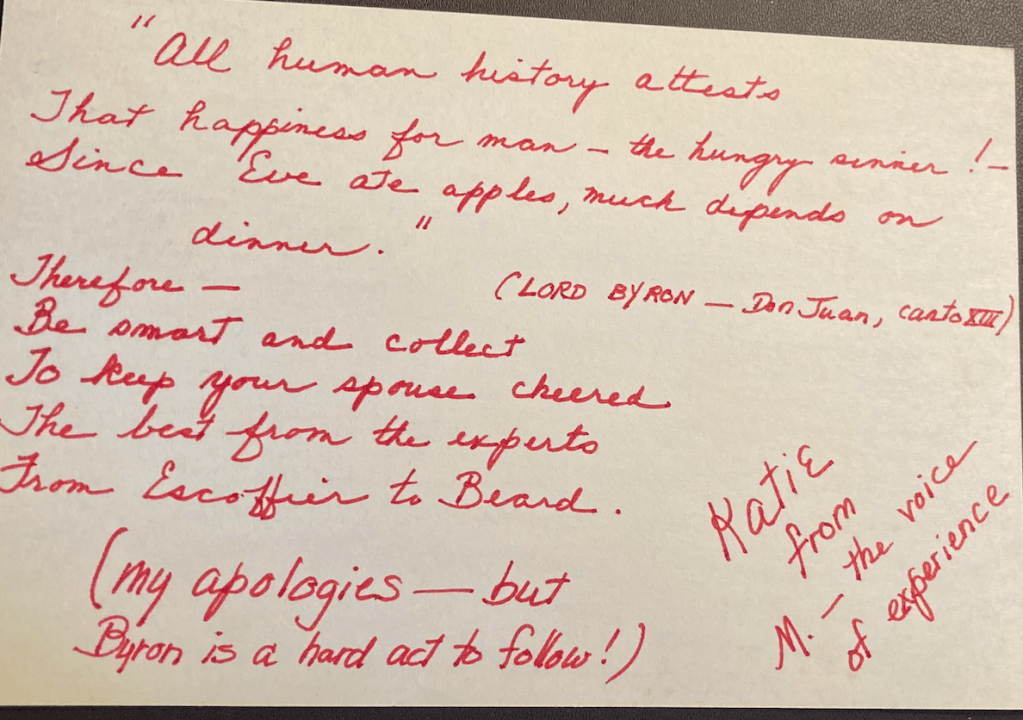 "All human history attests
That happiness for man – the hungry sinner! –
Since Eve ate apples, much depends on
dinner."
(LORD BYRON – Don Juan, canto XIII)
Therefore –
Be smart and collect
To keep your spouse cheered
The best from the experts
From Escoffier to Beard.
(my apologies – but
Byron is a hard act to follow!)
Katie
from
M. – the voice
of experience